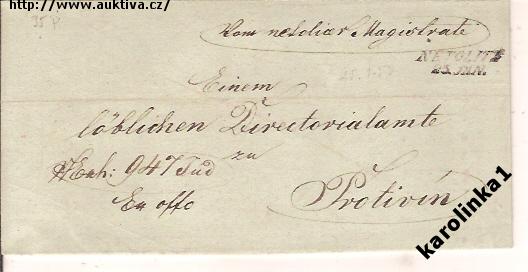 http://www.auktiva.cz/
Vom netoliser Magistrate
NETOLITZ
25. JAN.
Einem
löblichen Directorialamte
zu
947 Jud
Protivin
Ex offo
karolinka1